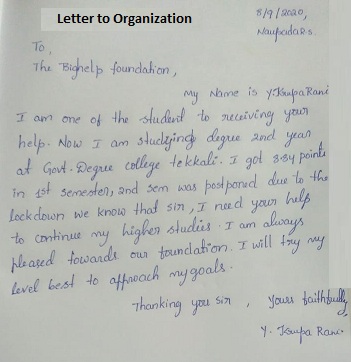 Letter to Organization
8/9/2020,
Naupada R.S.
To,
The Bighelp foundation,
My Name is Y.Krupa Rani
I am one of the student to receiving your
help. Now I am studying degree 2nd year
at Govt. Degree college tekkali. I got 3.84 points
in 1st semester, 2nd sem was postponed due to the
lockdown we know that sir, I need your help
to continue my higher studies. I am always
pleased towards our foundation. I will try my
level best to approach my goals.
Thanking you sir, Yours faithfully
Y. Krupa Rani.